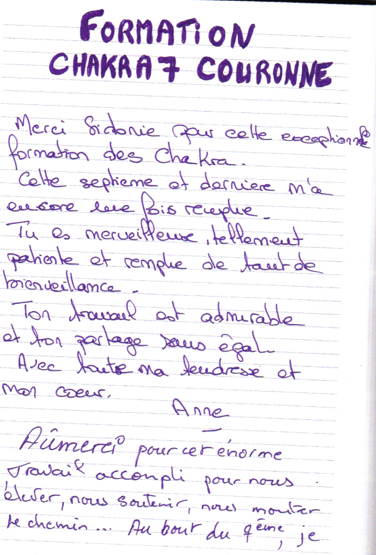 FORMATION
CHAKRA 7 COURONNE
Merci Sidonie pour cette exceptionnelle
formation des Chakra.
Cette septieme et derniere m'a
encore une fois remplie.
Tu es merveilleuse, tellement
patiente et remplie de tant de
bienveillance.
Ton travail est admirable
et ton partage sans égal.
Avec toute ma tendresse et
mon coeur.
Anne
pour cet énorme
travail accompli pour nous
élever, nous soutenir, nous montrer
le chemin... Au bout du 7ème, je